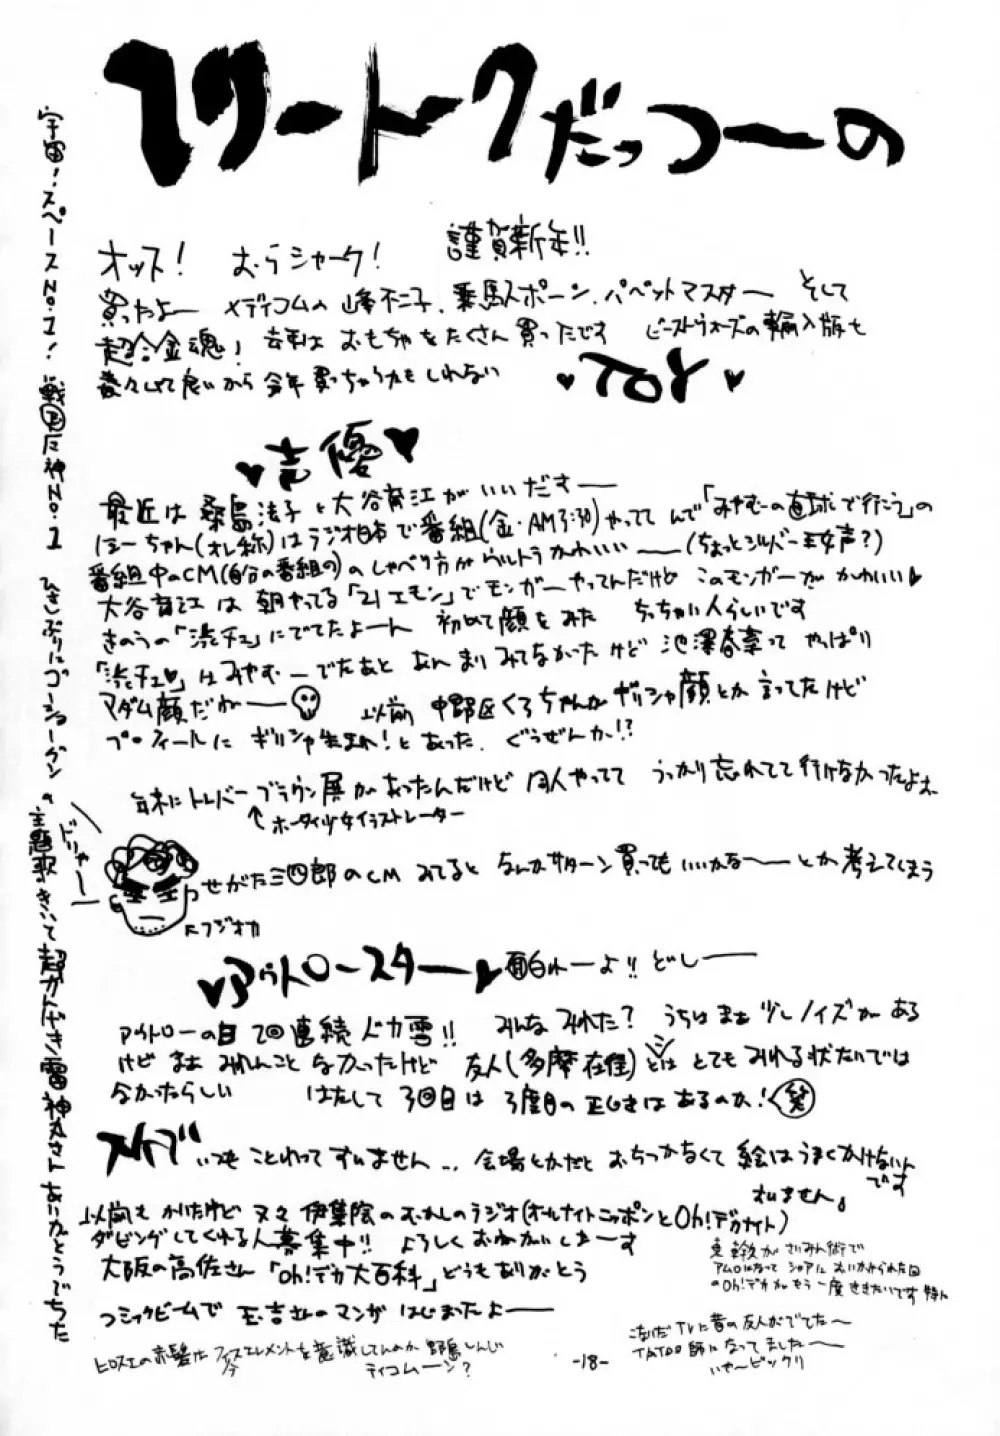 フリートークだっつーの
オッス! むらシャーク! 謹賀新年!!
買ったよー メディコムの峰不二子、乗馬スポーン、パペットマスター そして
超合金魂! 去年は おもちゃをたくさん買ったです ビーストウォーズの輸入版も
黄々して良いから 今年買っちゃうかもしれない
♥TOY♥
♥声優♥
最近は 桑島法子と大谷育江がいいだすー
ほーちゃん(オレ称)はラジオ日本で番組(金・AM3:30)やってて んで「みやむーの直球で行こう」の
番組中のCM(自分の番組の)のしゃべり方がウルトラかわいいー(ちょっとシルバー王女声?)
大谷育江は朝やってる「21エモン」でモンガーやってんだけど このモンガーがかわいい♥
きのうの「渋チェ」にでてたよーん 初めて顔をみた ちっちゃい人らしいです
「渋チェ♥」はみやむーでたあと あんまりみてなかったけど 池澤春菜って やっぱり
マダム顔だねー 以前 中野区くろちゃんがギリシャ顔とか言ってたけど
プロフィールに ギリシャ生まれ!とあった、ぐうぜんか!?
年末にトレバー・ブラウン展があったんだけど 同人やってて うっかり忘れてて行けなかったよお
↑ホータイ少女イラストレーター
せがた三四郎のCM みてると なんかサターン買ってもいいかなーとか考えてしまう
フジオカ
ドリャー
♥アウトロースター♥ 面白れーよ!! どしー
アウトローの日 2回連続ドカ雪!! みんなみれた? うちはまぁ少しノイズがある
けど まぁ みれんこと なかったけど 友人(多摩在住)とは とてもみれる状たいでは
なかったらしい はたして 3回目は 3度目の正じきはあるのか!(笑)
スケブ いつも ことわって すいません... 会場とかだと おちつかなくて 絵はうまくかけないん
です
すいません。
以前も かいたけど 又々 伊集院のむかしのラジオ(オールナイトニッポンとOh!デカナイト)
ダビングしてくれる人募集中!! よろしくおねがいしまーす
大阪の高佐さん「Oh!デカ大百科」どうもありがとう
東幹久がさいみん術で
アムロになって シャアに おいかけられた回
のOh!デカがもう一度ききたいです 特に
コミックビームで 玉吉さんのマンガ はじまったよー
こないだTVに昔の友人がでてた〜
TATOO師になってました〜
いや〜ビックリ
ヒロスエの赤髪はフィフスエレメントを意識してんのか 野島しんじ
ティコムーン?
-18-
宇宙!スペースNo.1! 戦国魔神No.1 ひさしぶりにゴーショーグンの主題歌きいて超かんげき 雷神丸さん ありがとうでちた